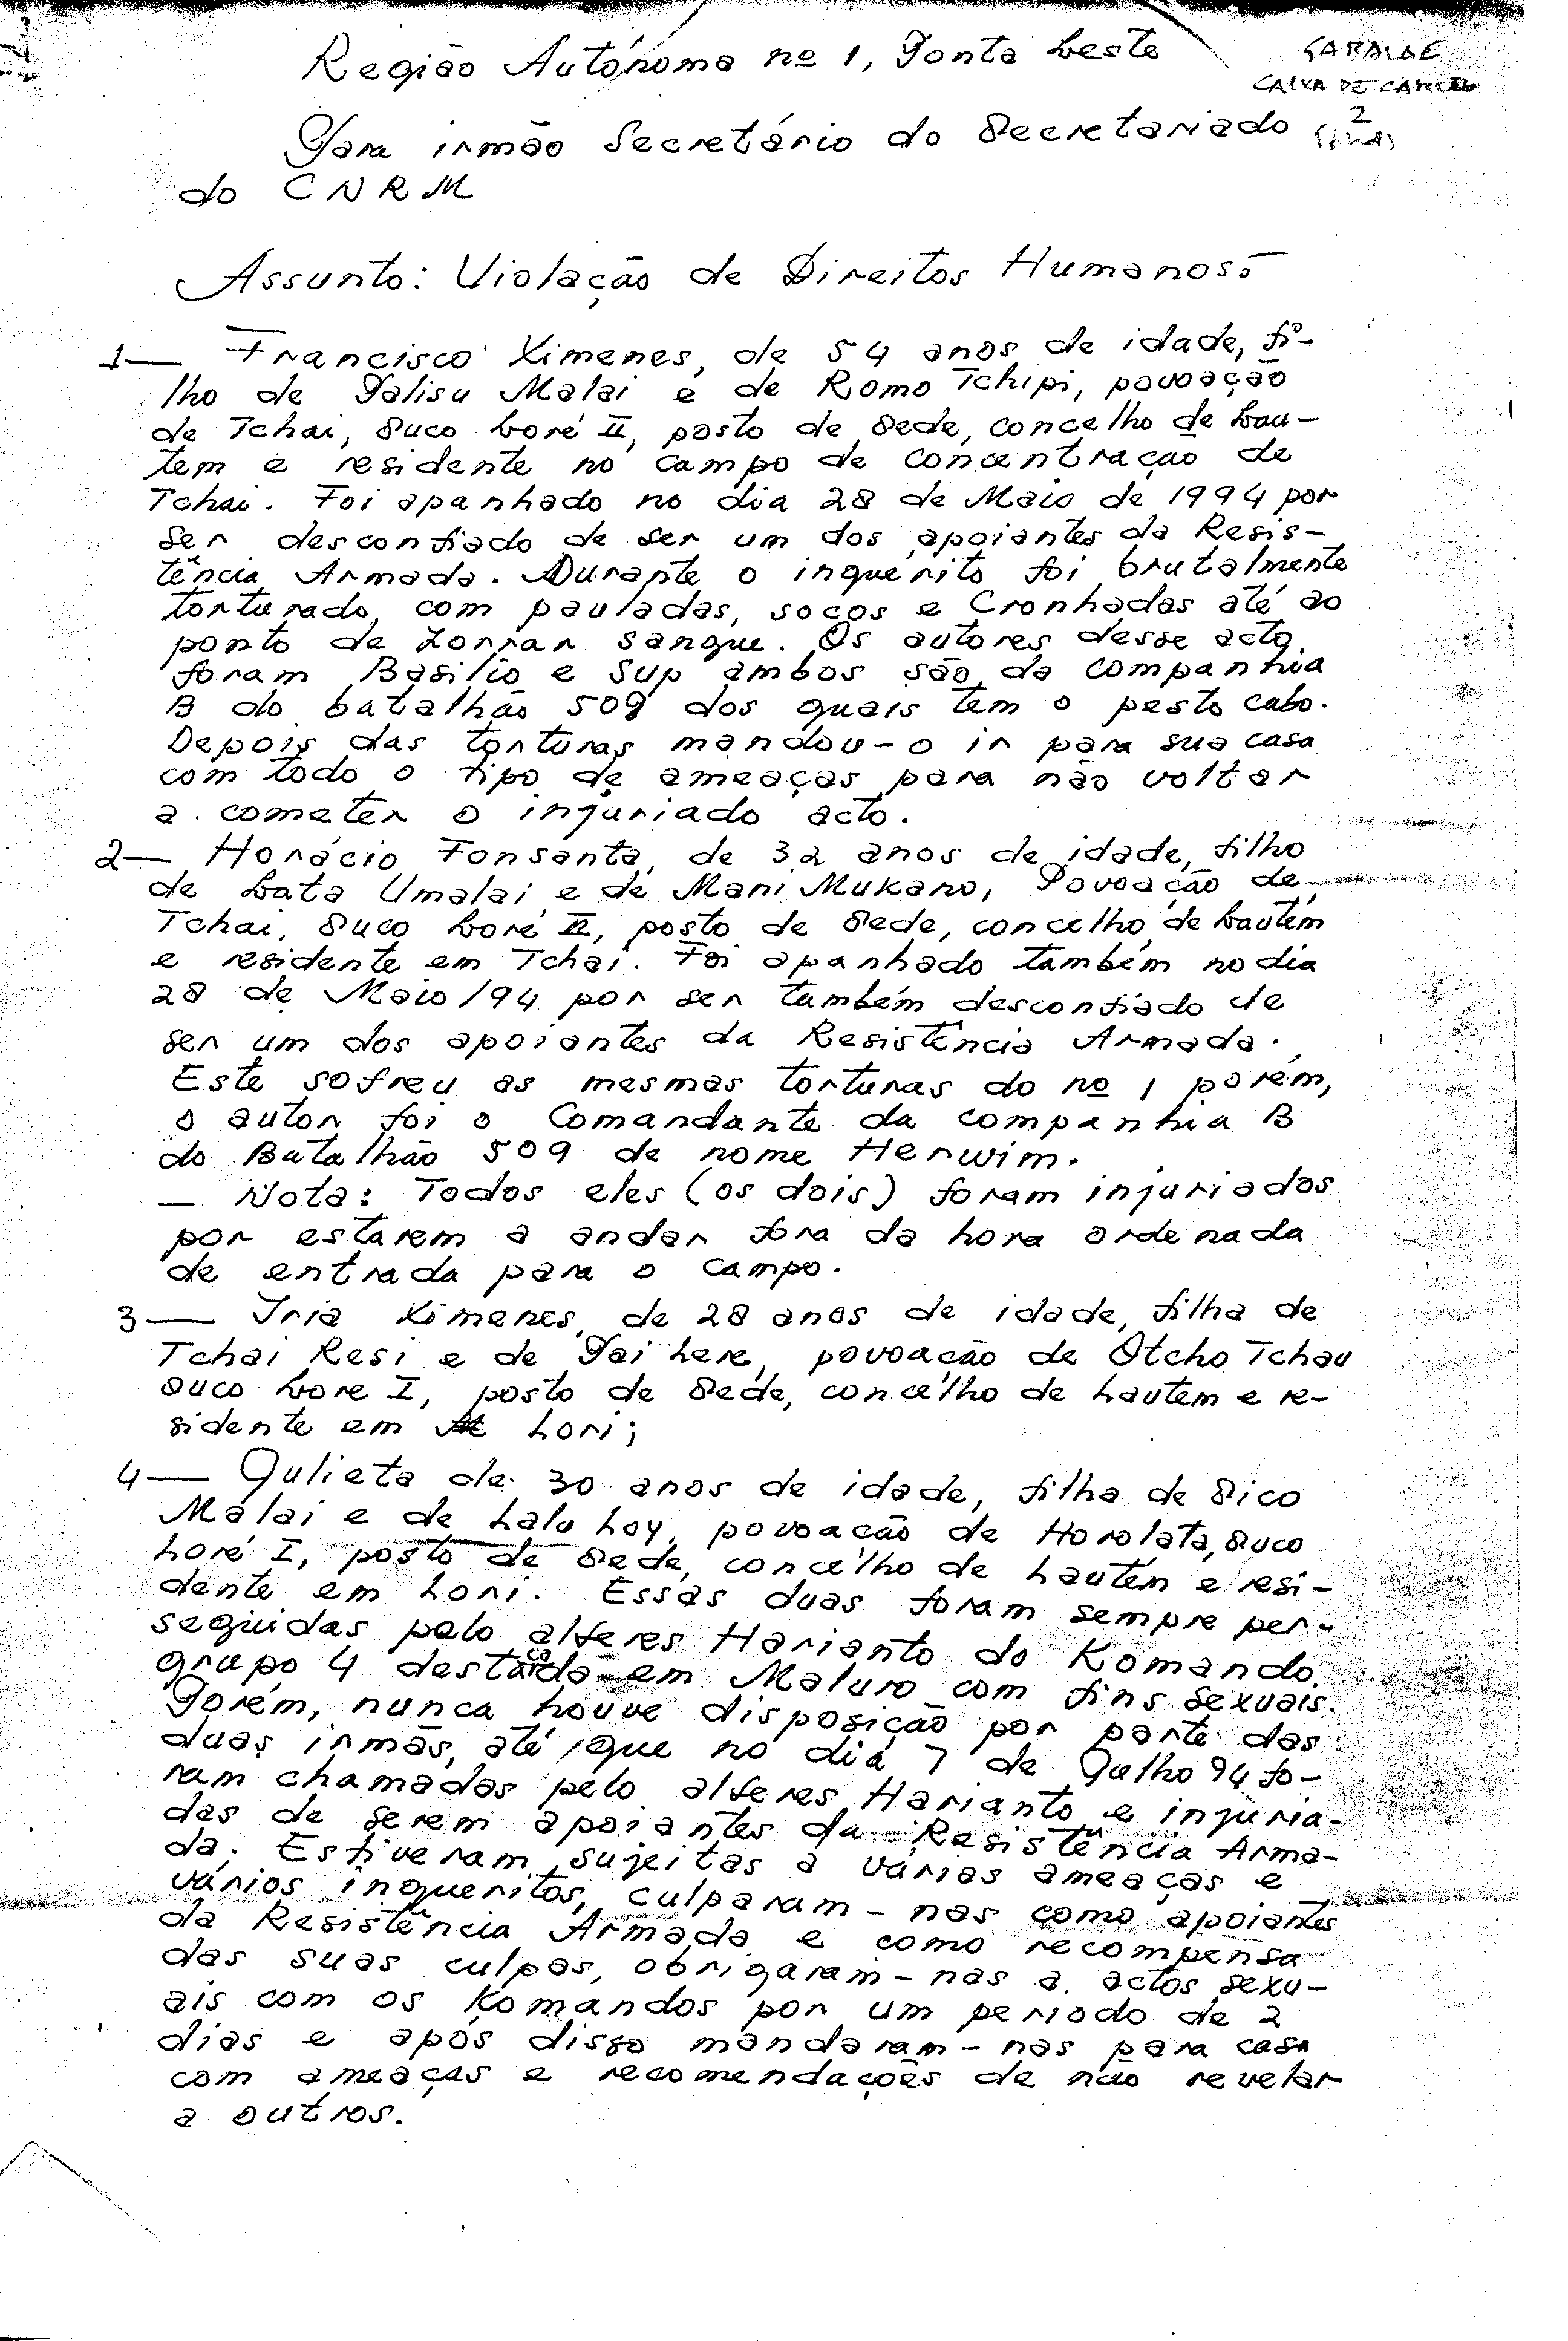 Região Autónoma nº 1, Ponta Leste
CAIXA DE CARTÃO
2
Para irmão Secretário do Secretariado
do CNRM
Assunto: Violação de Direitos Humanos:
1— Francisco Ximenes, de 54 anos de idade, fi-
lho de Palisu Malai e de Romo Tchipi, povoação
de Tchai, Suco Loré II, posto de Sede, concelho de Lau-
tem e residente no campo de concentração de
Tchai. Foi apanhado no dia 28 de Maio de 1994 por
ser desconfiado de ser um dos apoiantes da Resis-
tência Armada. Durante o inquérito foi brutalmente
torturado, com pauladas, socos e Cronhadas até ao
ponto de Zorrar sangue. Os autores desse acto
foram Basilio e Sup ambos são da companhia
B do batalhão 509 dos quais tem o posto cabo.
Depois das torturas mandou-o ir para sua casa
com todo o tipo de ameaças para não voltar
a cometer o injuriado acto.
2— Horácio Fonsanta, de 32 anos de idade, filho
de Lata Umalai e de Mani Mukano, Povoação de
Tchai, Suco Loré II, posto de Sede, concelho de Lautém
e residente em Tchai. Foi apanhado também no dia
28 de Maio/94 por ser também desconfiado de
ser um dos apoiantes da Resistência Armada.
Este sofreu as mesmas torturas do nº 1 porém,
o autor foi o Comandante da companhia B
do Batalhão 509 de nome Herwim.
— Nota: Todos eles (os dois) foram injuriados
por estarem a andar fora da hora ordenada
de entrada para o campo.
3— Iria Ximenes, de 28 anos de idade, filha de
Tchai Resi e de Pai Lere, povoação de Otcho Tchau
Suco Lore I, posto de Sede, concelho de Lautem e re-
sidente em Lori;
4— Julieta de 30 anos de idade, filha de Sico
Malai e de Lalu Loy, povoação de Horolata, Suco
Loré I, posto de Sede, concelho de Lautém e resi-
dente em Lori. Essas duas foram sempre per-
seguidas pelo alferes Harianto do Komando
grupo 4 destacado em Maluro com fins sexuais.
Porém, nunca houve disposição por parte das
duas irmãs, até que no dia 7 de Julho 94 fo-
ram chamadas pelo alferes Harianto e injuria-
das de serem apoiantes da Resistência Arma-
da. Estiveram sujeitas a várias ameaças e
vários inqueritos, culparam-nas como apoiantes
da Resistência Armada e como recompensa
das suas culpas, obrigaram-nas a actos sexu-
ais com os Komandos por um periodo de 2
dias e após disso mandaram-nas para casa
com ameaças e recomendações de não revelar
a outros.